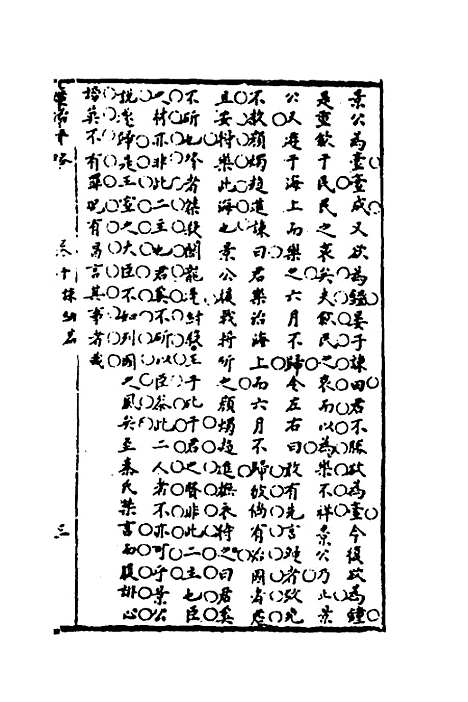 景公為臺臺成又欲為鐘晏子諫曰君不勝欲為臺今復欲為鐘
是重斂于民民之哀矣夫斂民之哀而以為樂不祥景公乃止景
公又遊于海上而樂之六月不歸令左右曰敢有先言歸者致死
不赦顏燭趨進諫曰君樂治海上而六月不歸彼倘有治國者君
且安得樂此海也景公援戟將斫之顏燭趨進撫衣待之曰君奚
不斫也昔者桀殺關龍逢紂殺王子比干君之賢非此二主也臣
之材亦非此二主也君奚不斫以臣參此二人者不亦可乎景公
說遂歸是王室之大臣不如列國之風矣至秦氏禁言而腹誹心
謗莫不有罪况有昌言其事者哉
卷十
三